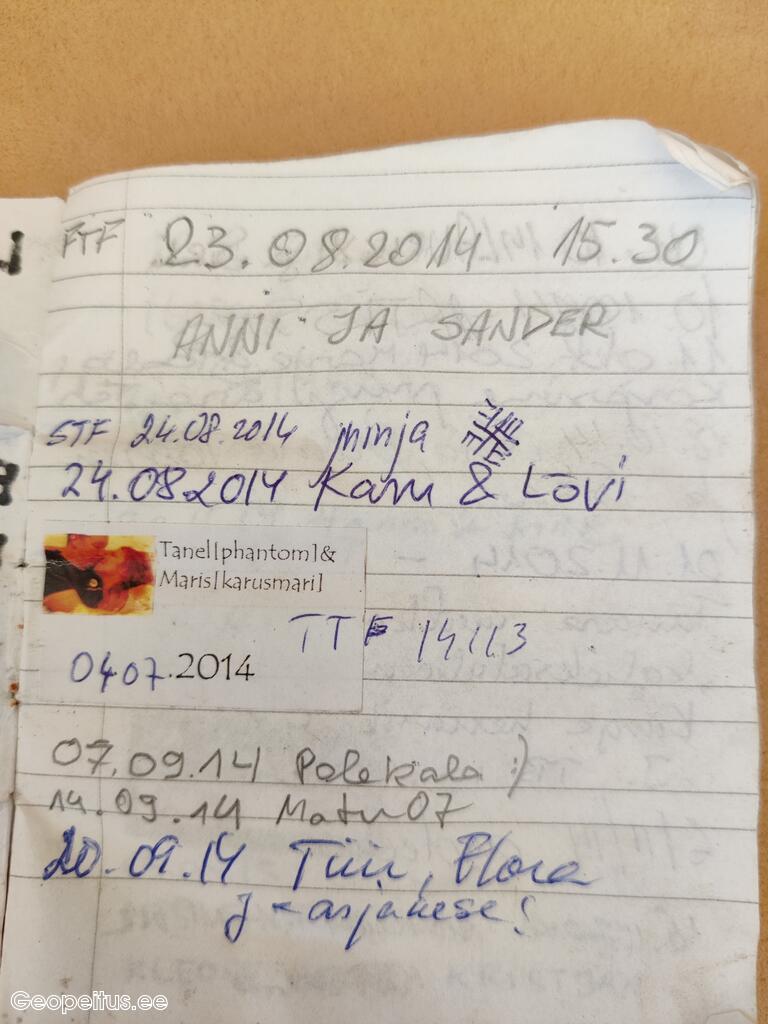 FTF 23.08.2014 15.30
ANNI JA SANDER
STF 24.08.2014 ninja
24.08.2014 Karu & Lõvi
Tanel[phantom]&
Maris[karusmari]
TTF 14:13
04 07.2014
07.09.14 Polekala :)
14.09.14 Matu07
20.09.14 Tiiu, Flora
J - asjakese!
Geopeitus.ee